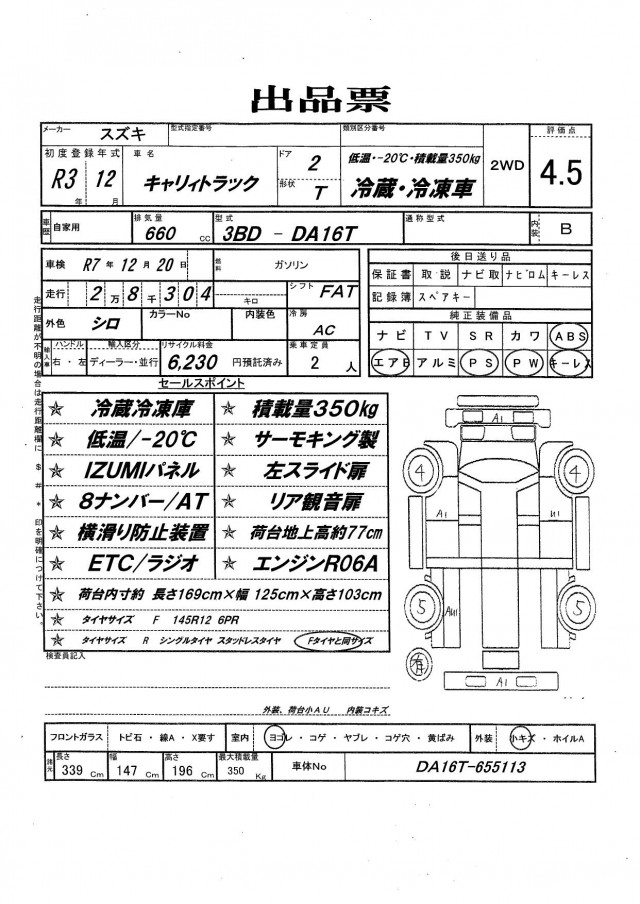 出品票
メーカー スズキ 型式指定番号 類別区分番号 評価点
初度登録年式 R3年 12月 車名 キャリィトラック ドア 2 形状 T 低温・-20℃・積載量350kg 冷蔵・冷凍車 2WD 4.5
車歴 自家用 排気量 660 cc 型式 3BD - DA16T 通称型式 内装 B
車検 R7年 12月 20日 燃料 ガソリン
走行 2万8千304 キロ シフト FAT
外色 シロ カラーNo 内装色 冷房 AC
輸入車 ハンドル 右・左 輸入区分 ディーラー・並行 リサイクル料金 6,230 円預託済み 乗車定員 2 人
後日送り品
保証書 取・説 ナビ取 ナビロム キーレス
記録簿 スペアキー
純正装備品
ナビ TV SR カワ ABS
エアB アルミ PS PW キーレス
走行距離が不明の場合は走行距離欄に $ # * 印を明確につけて下さい。
セールスポイント
☆ 冷蔵冷凍庫 ☆ 積載量350kg
☆ 低温/-20℃ ☆ サーモキング製
☆ IZUMIパネル ☆ 左スライド扉
☆ 8ナンバー/AT ☆ リア観音扉
☆ 横滑り防止装置 ☆ 荷台地上高約77cm
☆ ETC/ラジオ ☆ エンジンR06A
☆ 荷台内寸約 長さ169cm×幅 125cm×高さ103cm
☆ タイヤサイズ F 145R12 6PR
☆ タイヤサイズ R シングルタイヤ スタッドレスタイヤ Fタイヤと同サイズ
A1
4 4
A1
5 AU1 5
有
A1
検査員記入
外装、荷台小AU 内装コキズ
フロントガラス トビ石・線A・X要す 室内 ヨゴレ・コゲ・ヤブレ・コゲ穴・黄ばみ 外装 小キズ・ホイルA
諸元 長さ 339 Cm 幅 147 Cm 高さ 196 Cm 最大積載量 350 Kg 車体No DA16T-655113